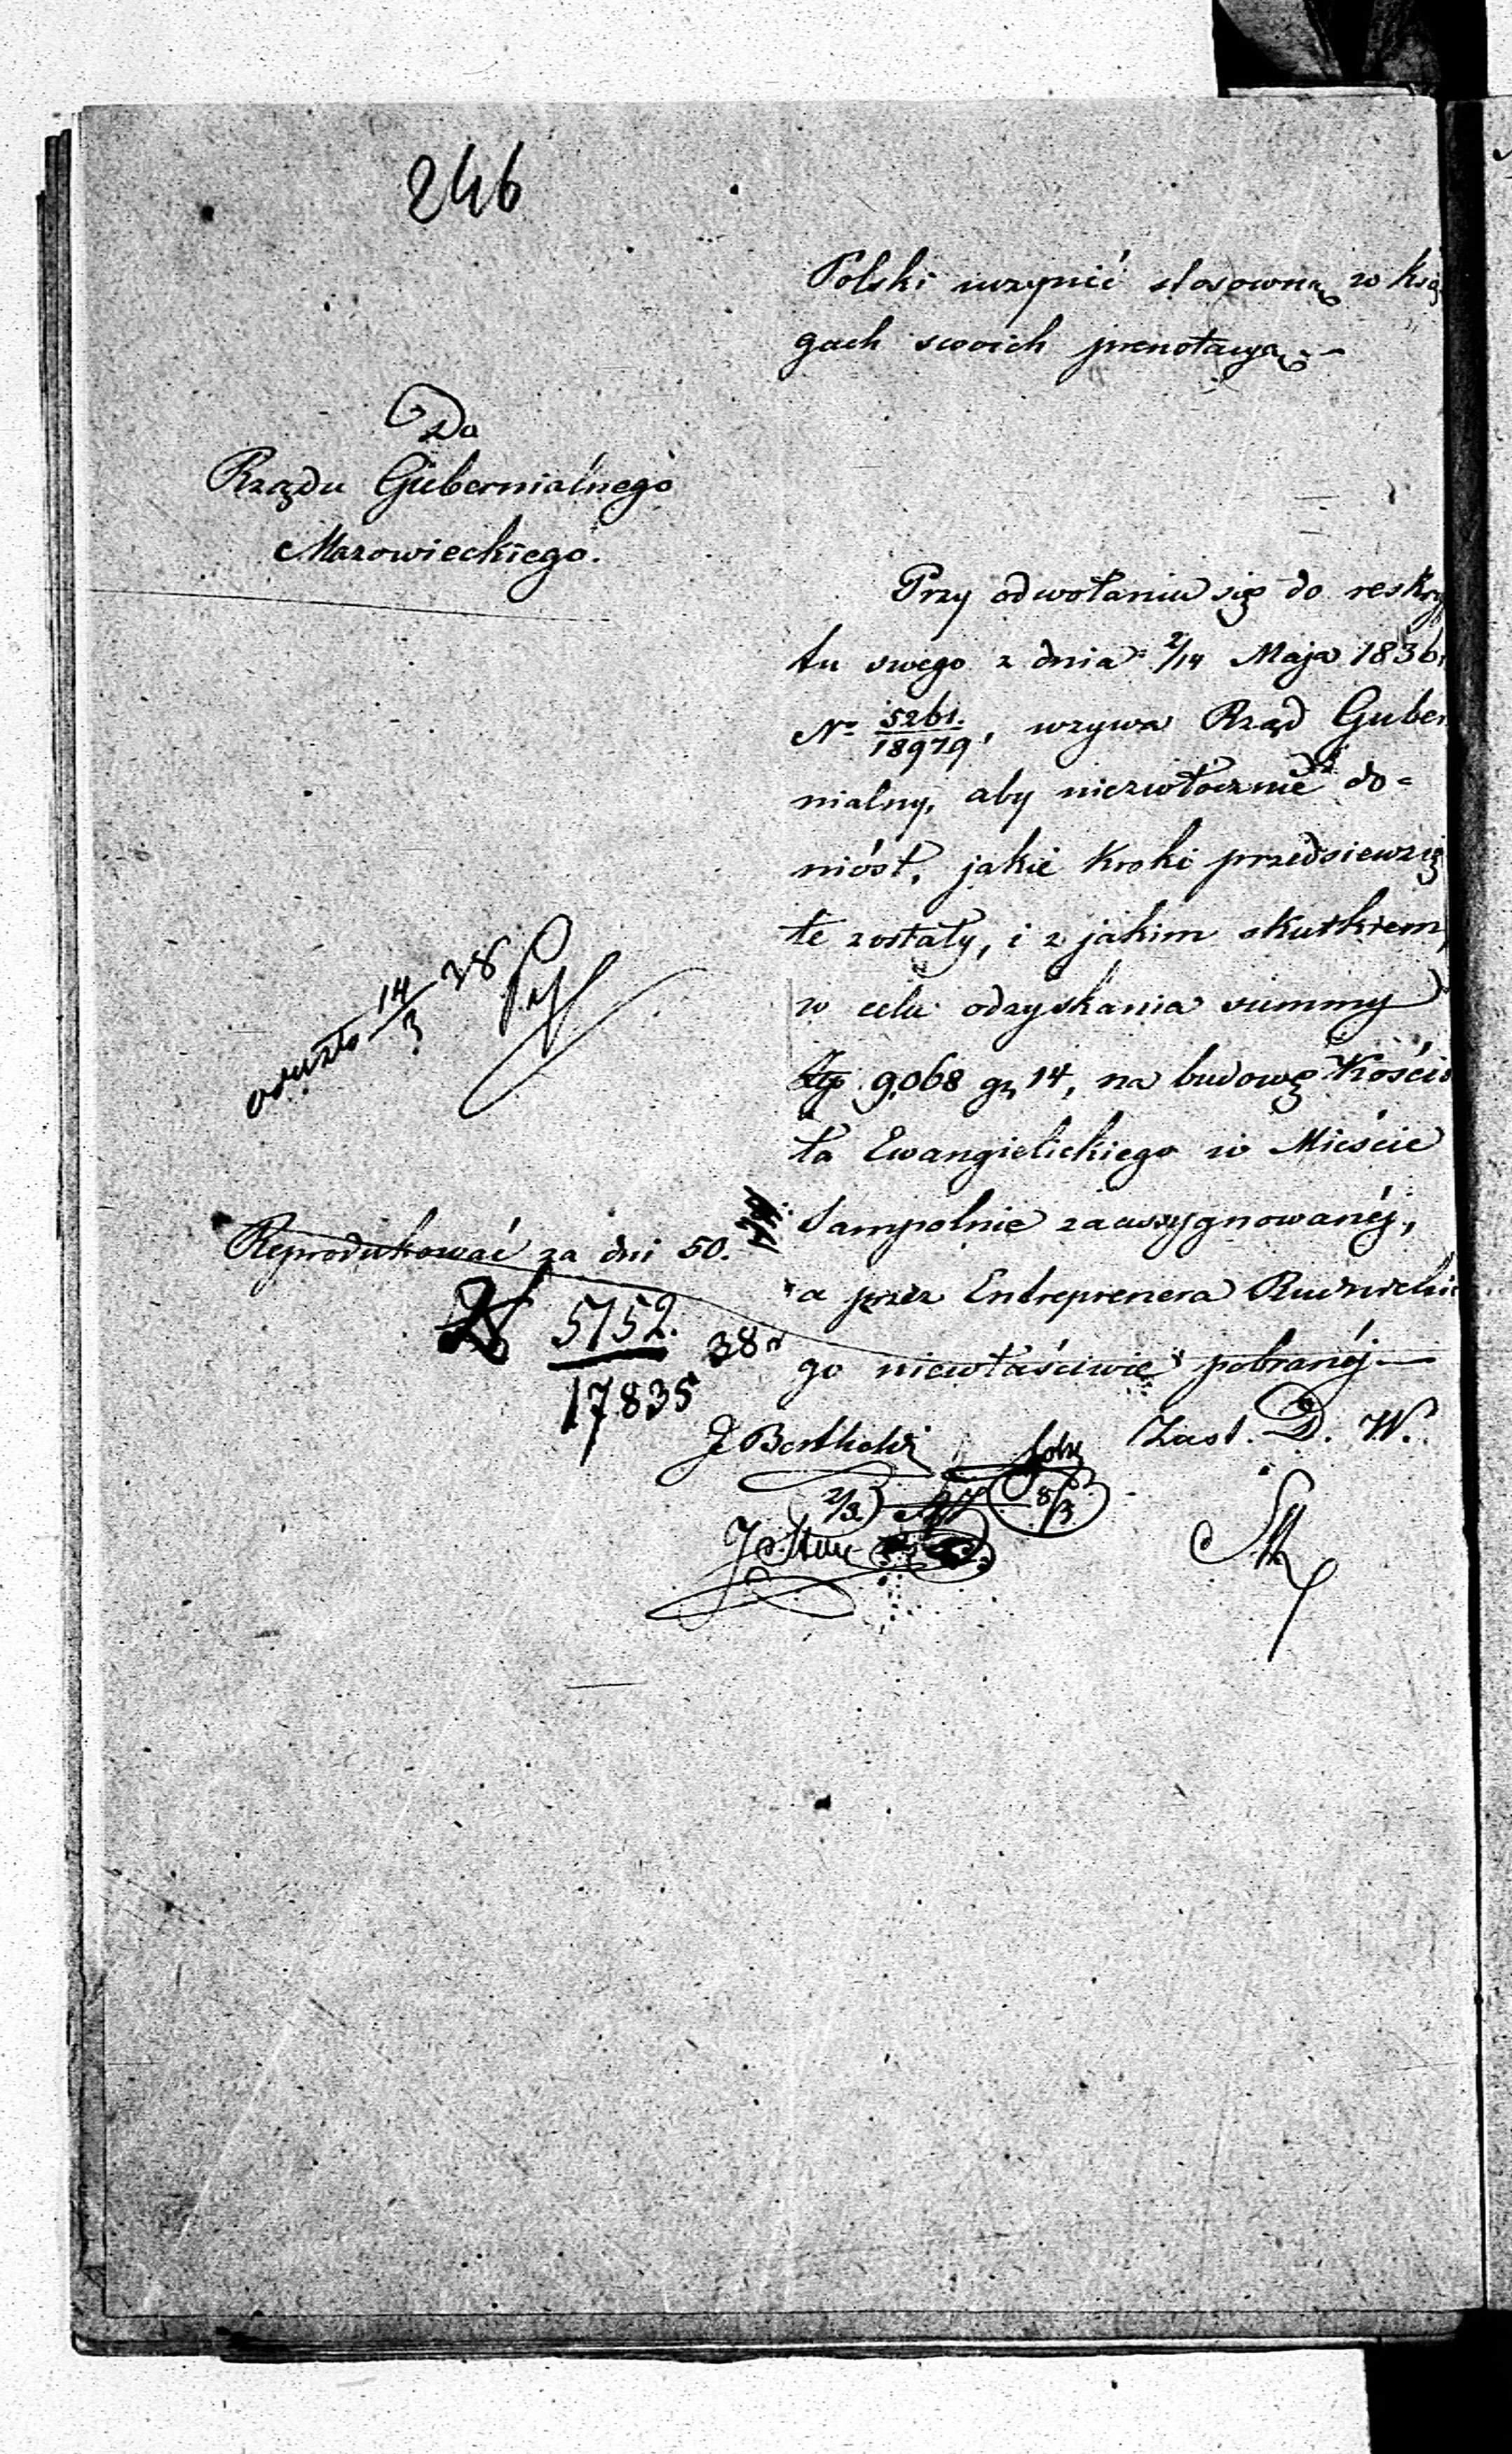 246
Polski uczynić stosowną w Ksią
gach swoich prenotacyą. —
Do
Rządu Gubernialnego
Mazowieckiego.
Przy odwołaniu się do reskry
tu swego z dnia 2/14 Maja 1836
No 5261./18979, wzywa Rząd Guber
nialny, aby niezwłocznie do=
niósł, jakie kroki przedsiewzię
te zostały, i z jakim skutkiem,
w celu odzyskania summy
Złp 9,068 gr 14, na budowę Kościo
ła Ewangielickiego w Mieście
Sampolnie zaassygnowanéj,
a przez Entreprenera Rudnickie
go niewłaściwie pobranéj —
odeszło 14/3 38
Reprodukować za dni 50.
5752./17835 38 r
Zast. D. W.
2/3
8/3